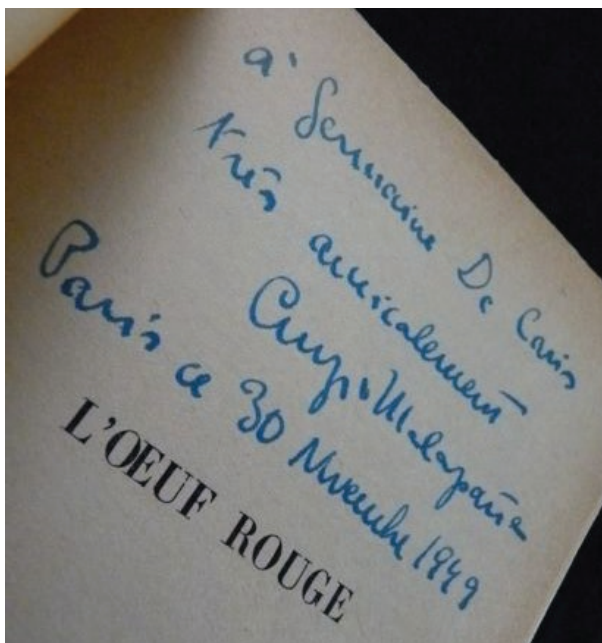 à Germaine De Caris
très amicalement
Curzio Malaparte
Paris ce 30 Novembre 1949
L'ŒUF ROUGE